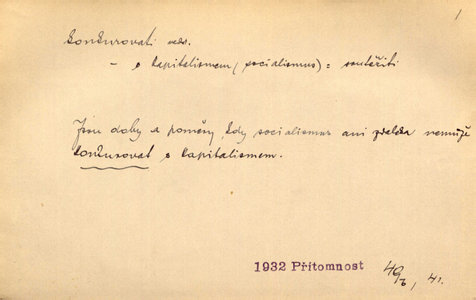 1
konkurovati ned.
– s kapitalismem (socialismus) = soutěžiti
Jsou doby a poměry, kdy socialismus ani zdaleka nemůže
konkurovat s kapitalismem.
1932 Přítomnost
41.